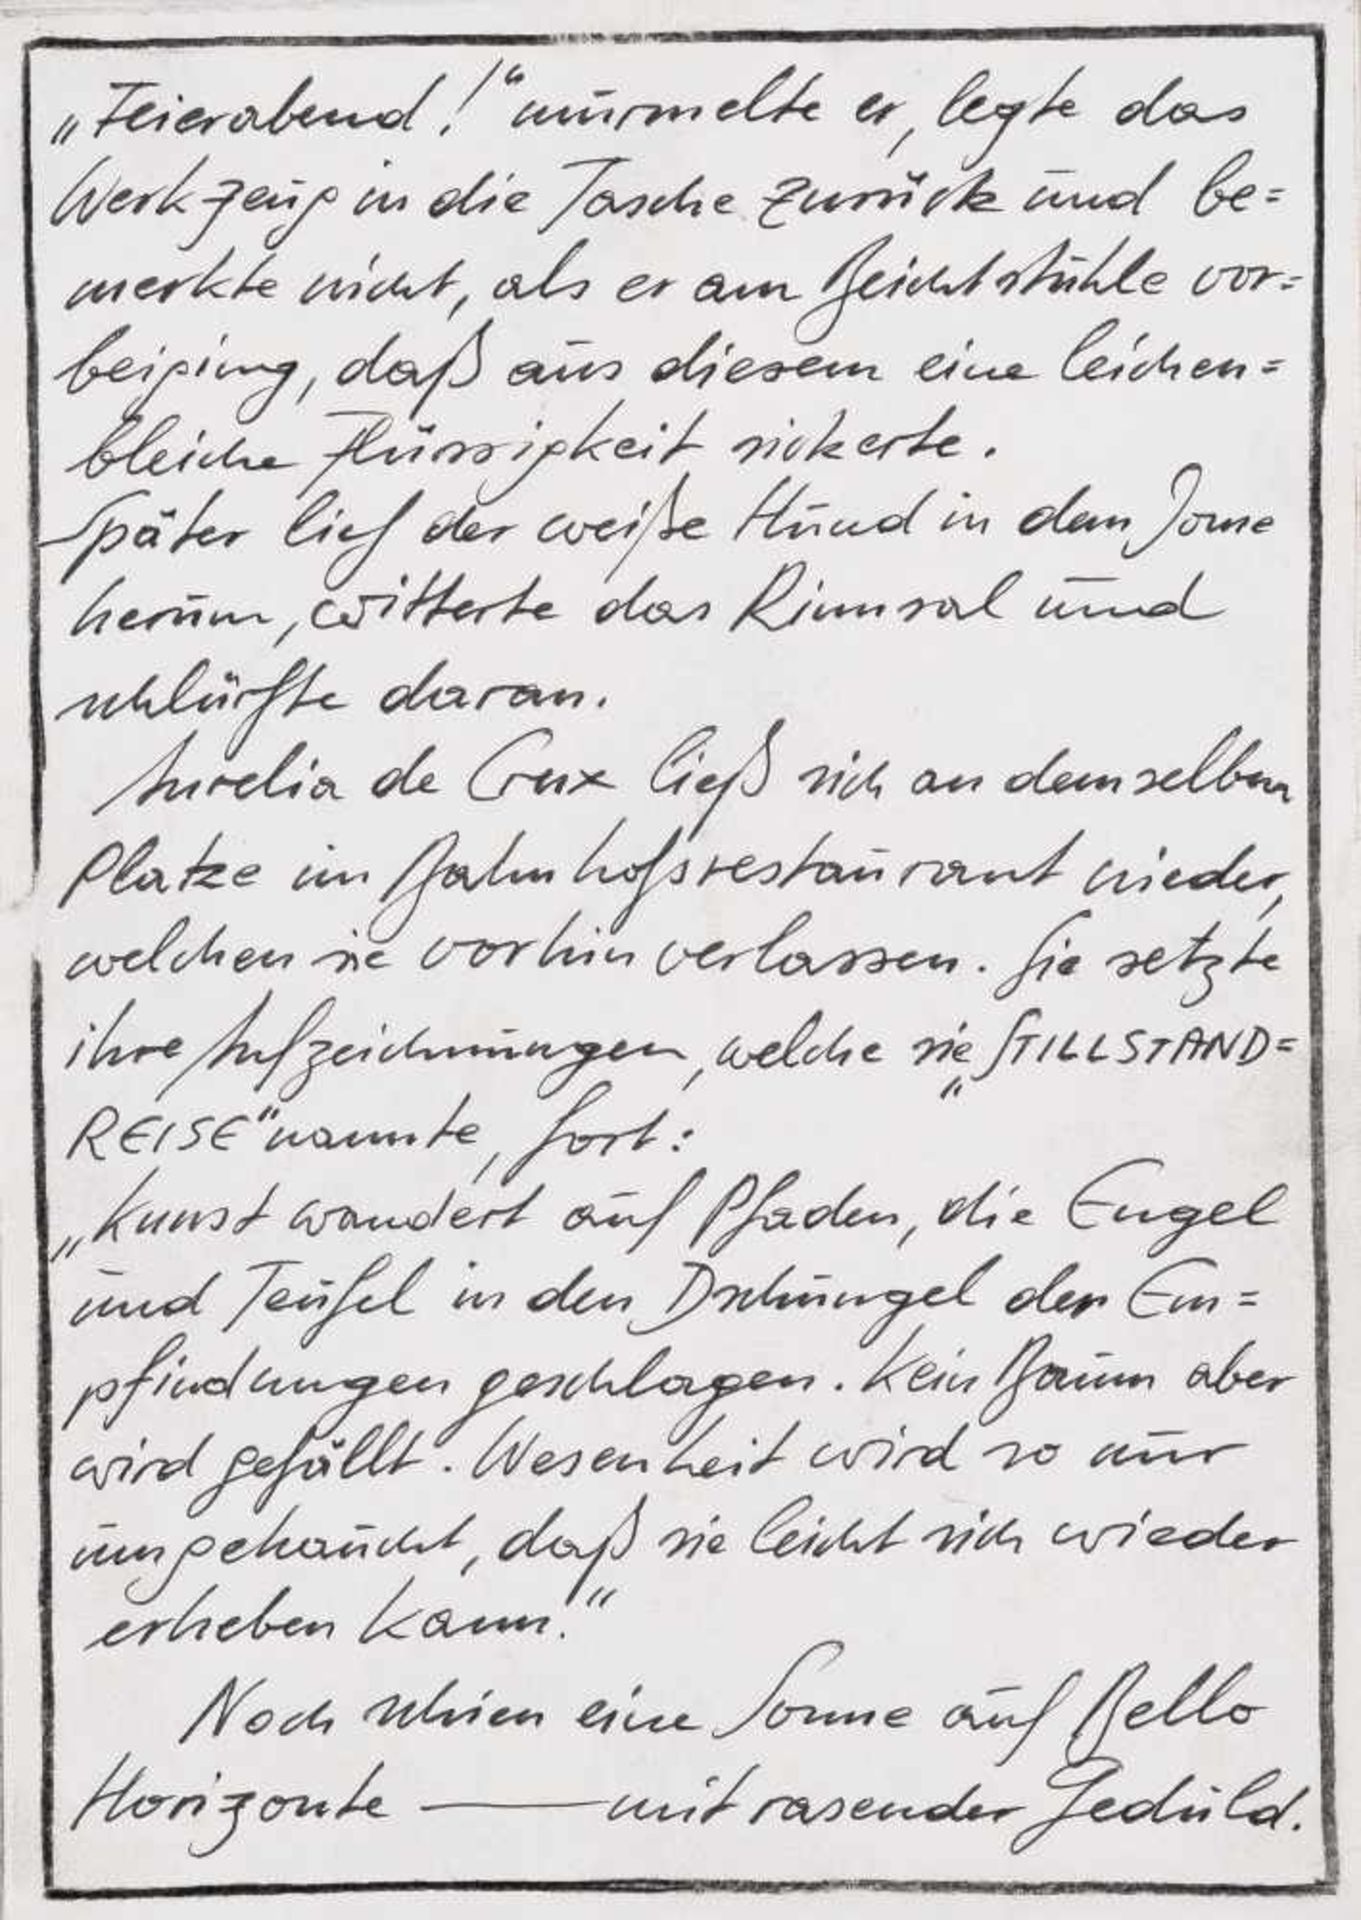 „Feierabend!“ murmelte er, legte das
Werkzeug in die Tasche zurück und be=
merkte nicht, als er am Beichtstuhle vor=
beiging, daß aus diesem eine leichen=
bleiche Flüssigkeit sickerte.
Später lief der weiße Hund in dem Dome
herum, witterte das Rinnsal und
schlürfte daran.
Aurelia de Crux ließ sich an demselben
Platze im Bahnhofsrestaurant nieder,
welchen sie vorhin verlassen. Sie setzte
ihre Aufzeichnungen, welche sie „STILLSTAND=
REISE“ nannte, fort:
„Kunst wandert auf Pfaden, die Engel
und Teufel in den Dschungel der Em=
pfindungen geschlagen. Kein Baum aber
wird gefällt. Wesenheit wird so nur
umgehaucht, daß sie leicht sich wieder
erheben kann.“
Noch schien eine Sonne auf Bello
Horizonte — mit rasender Geduld.